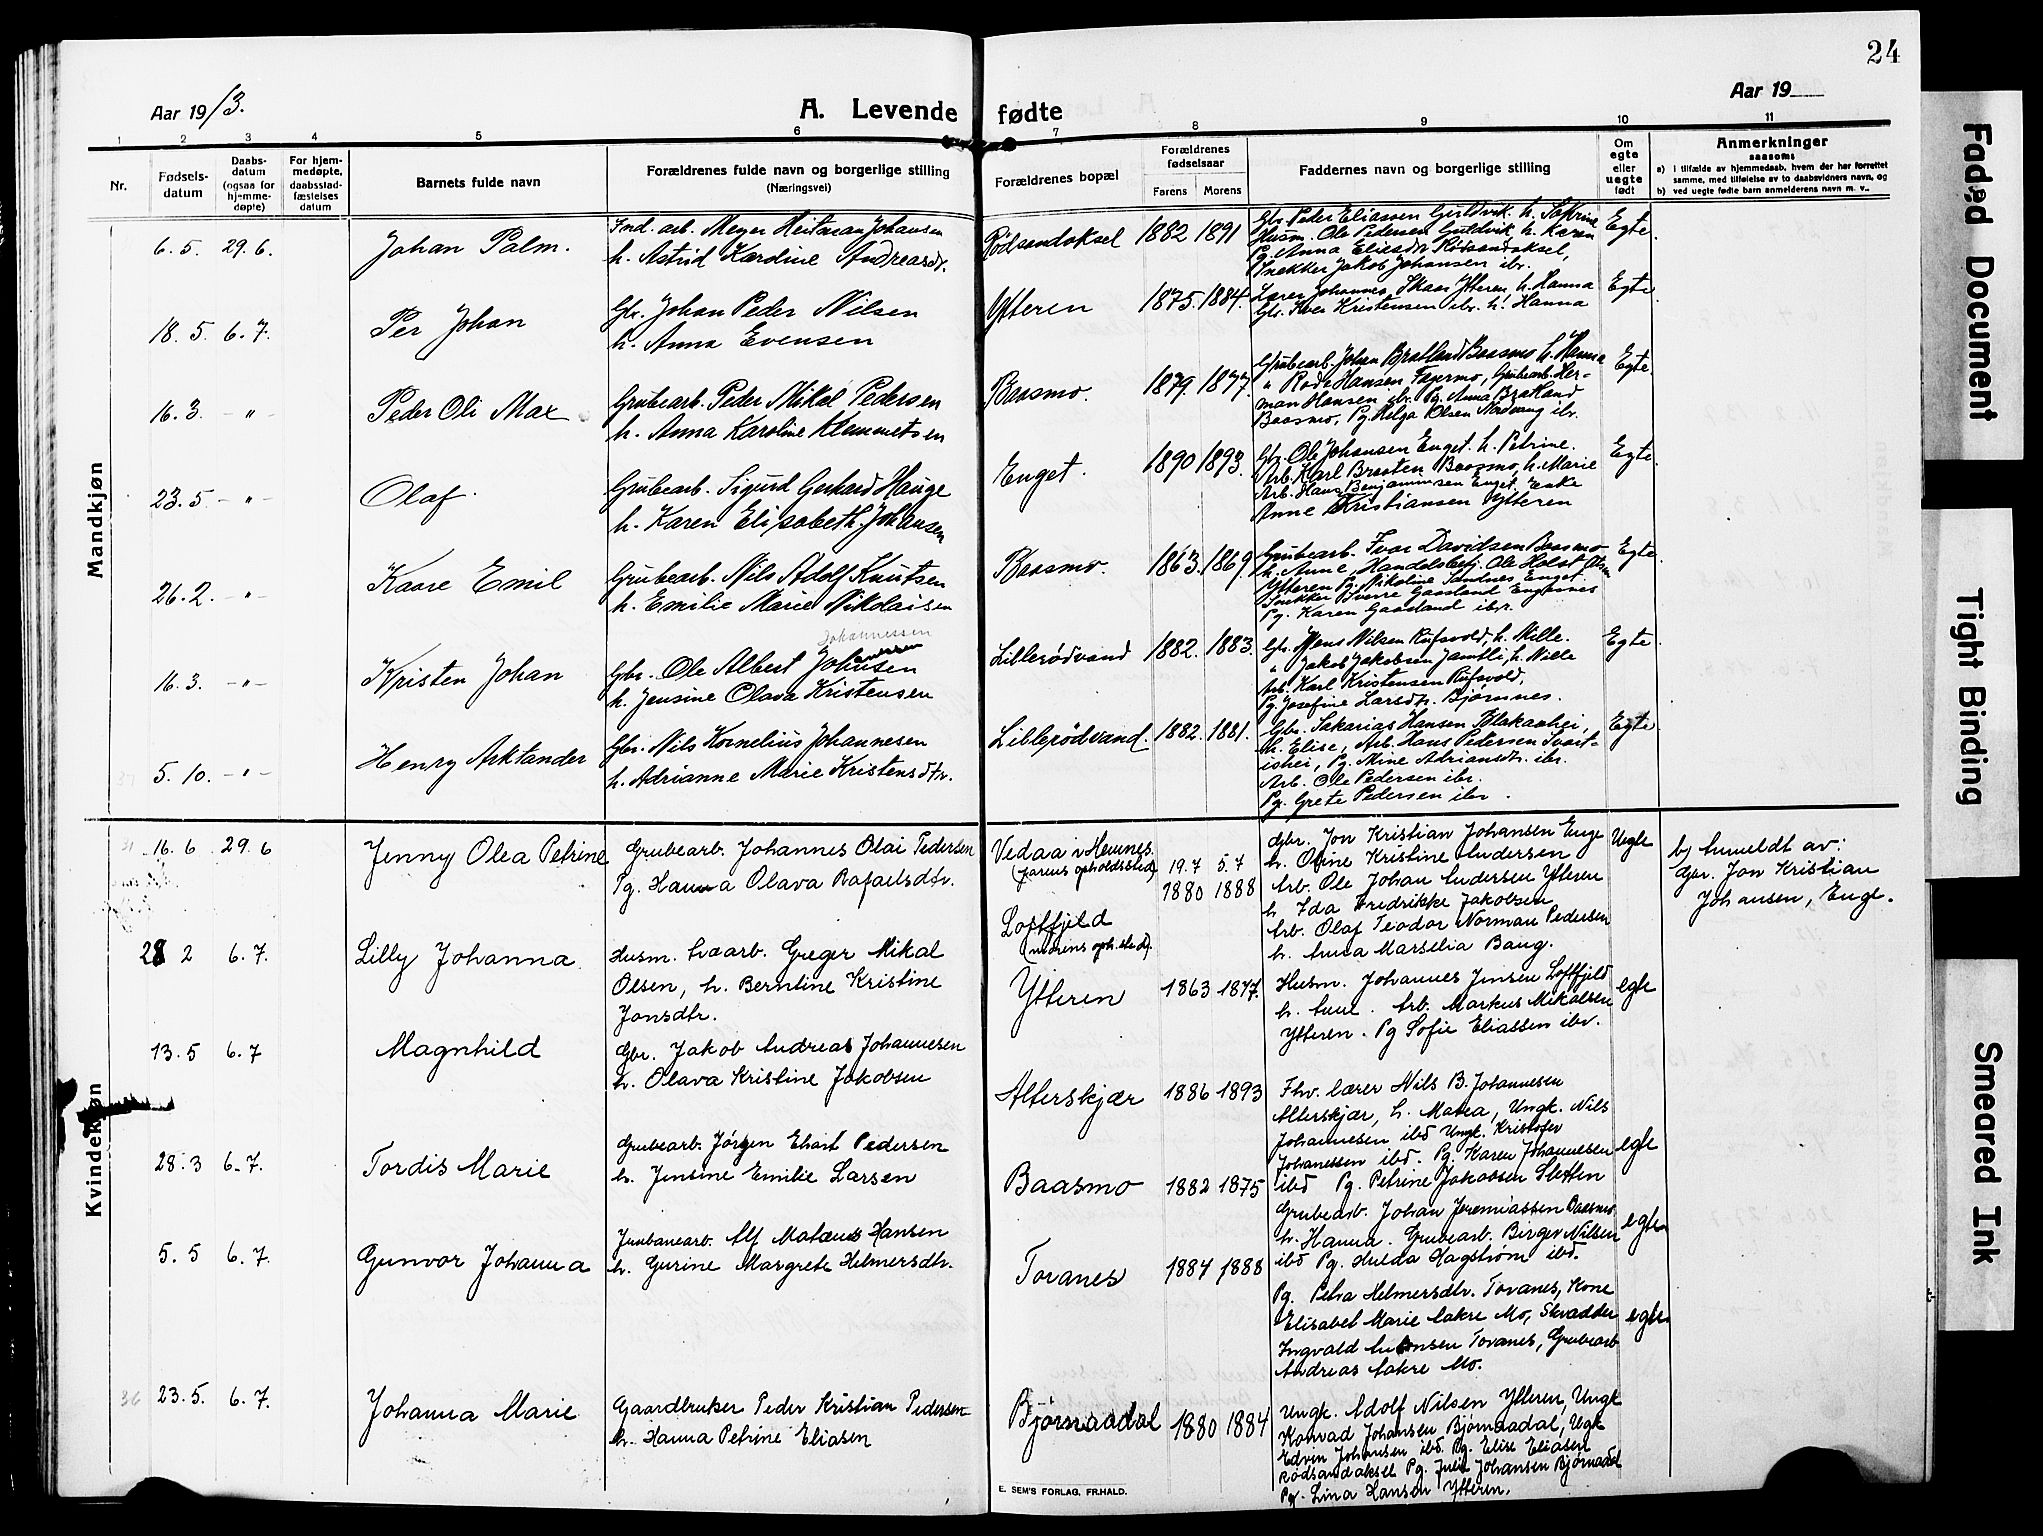 24
Aar 1913.
A. Levende fødte
Aar 19
1 2 3 4 5 6 7 8 9 10 11
Nr.
Fødsels-
datum
Daabs-
datum
(ogsaa for
hjemme-
døpte)
For hjem-
medøpte,
daabsstad-
fæstelses
datum
Barnets fulde navn
Forældrenes fulde navn og borgerlige stilling
(Næringsvei)
Forældrenes bopæl
Forældrenes
fødselsaar
Farens Morens
Faddernes navn og borgerlige stilling
Om
egte
eller
uegte
født
Anmerkninger
saasom:
a) i tilfælde av hjemmedaab, hvem der har forrettet
samme, med tilføielse av to daabsvidners navn, og
b) ved uegte fødte barn anmelderens navn m. v..
Mandkjøn
6. 5. 29. 6. Johan Palm.
Ind. arb. Meyer Heitman Johansen
h. Astrid Kardine Andreasdr.
Rødsandaksel 1882 1891
Gbr. Peder Eliassen Guldvik. h. Sakrine
Husm. Ole Pedersen Guldvik h. Karen
Pg. Anna Eliesdr. Rødsandaksel,
Snekker Jakob Johansen ibr.
Egte.
18. 5. 6. 7. Per Johan
Gbr. Johan Peder Nilsen
h. Anna Evensen
Ytteren 1875. 1884.
Lærer Johannes Skaar Ytteren, h. Hanna
Gbr. Iver Kristensen ibr. h. Hanna
Egte.
16. 3. - " - Peder Oli Max
Grubearb. Peder Mikal Pedersen
h. Anna Karoline Klemmetsen
Baasmo. 1879. 1877.
Grubearb. Johan Bratland Baasmo h. Hanna
" Rode Hansen Fagermo, Grubearb. Her-
man Hansen ibr. Pg. Anna Bratland
Baasmo, Pg. Helga Olsen Nordvang ibr.
Egte.
23. 5. - " - Olaf.
Grubearb. Sigurd Gerhard Hauge
h. Karen Elisabeth Johansen
Enget. 1890 1893.
Gbr. Ole Johansen Enget. h. Petrine.
Arb. Karl Braaten Baasmo, h. Marie
Arb. Hans Benjaminsen Enget. Enke
Anne Kristiansen Ytteren
Egte.
26. 2. - " - Kaare Emil
Grubearb. Nils Adolf Knutsen
h. Emilie Marie Nikolaisen
Baasmo. 1863. 1869.
Grubearb. Ivar Davidsen Baasmo
h. Anne, Handelsbetj. Ole Holst Olsen
Ytteren Pg. Nikoline Sandnes Enget.
Snekker Sverre Gaasland Engesnes
Pg. Karen Gaasland ibr.
Egte.
16. 3. - " - Kristen Johan
Johannessen
Gbr. Ole Albert Johnsen
h. Jensine Olava Kristensen
Lillerødvand 1882. 1883.
Gbr. Hans Nilsen Rufsvold, h. Nille.
" Jakob Jakobsen Jamtli, h. Nille
Arb. Karl Kristensen Rufsvold,
Pg. Josefine Larsdtr. Bjørnnes.
Egte.
5. 10. - " - Henry Arktander
Gbr. Nils Kornelius Johannesen
h. Adrianne Marie Kristensdtr.
Lillerødvand. 1882. 1881.
Gbr. Sakarias Hansen Blakaahei,
h. Elise, Arb. Hans Pedersen Svart-
ishei, Pg. Mine Adriansdtr. ibr.
Arb. Ole Pedersen ibr.
Pg. Grete Pedersen ibr.
Egte.
Kvindekjøn
31 16. 6 29. 6 Jenny Olea Petrine
Grubearb. Johannes Olai Pedersen
Pg. Hanna Olava Rafaelsdtr.
Vedaa i Hemnes.
(farens opholdssted)
Loftfjeld
(morens oph.sted).
19.7 5.7
1880 1888
Gbr. Jon Kristian Johansen Enge
h. Oline Kristine Andersen
Arb. Ole Johan Andersen Ytteren
h. Ida Fredrikke Jakobsen
Arb. Olaf Teodor Norman Pedersen
h. Anna Marselia Bang.
Uegte
b) Anmeldt av:
Gbr. Jon Kristian
Johansen, Enge.
28 2 6. 7. Lilly Johanna
Husm. Graarb. Greger Mikal
Olsen, h. Berntine Kristine
Jonsdtr.
Ytteren 1863 1877.
Husm. Johannes Jensen Loftfjeld
h. Anne. Arb. Markus Mikalsen
Ytteren. Pg Sofie Eliassen ibr.
egte
13. 5 6. 7 Magnhild
Gbr. Jakob Andreas Johannesen
h. Olava Kristine Jakobsen
Alterskjær 1886 1893
Fhv. lærer Nils B. Johannesen
Alterskjær, h. Matea, Ungk. Nils
Johannesen ibd Ungk. Kristofer
Johanessen ibd. Pg. Karen Johannesen
ibd Pg. Petrine Jakobsen Sletten
egte
28. 3 6. 7. Tordis Marie
Grubearb. Jørgen Ehart Pedersen
h. Jensine Emilie Larsen
Baasmo 1882 1875
Grubearb. Johan Jeremiassen Baasmo
h. Hanna. Grubearb. Birger Nilsen
ibd Pg. Hulda Hagstrøm ibd.
egte
5. 5 6. 7. Gunvor Johanna
Jernbanearb. Alf Mateus Hansen
h. Gurine Margrete Helmersdtr.
Toranes 1884 1888
Pg. Petra Helmersdtr. Toranes, Kone
Elisabet Marie Aakre Mo, Skrædder
Ingvald Antonsen Toranes, Grubearb
Andreas Aakre Mo.
egte
36 23. 5. 6. 7. Johanna Marie
Gaardbruker Peder Kristian Pedersen
h. Hanna Petrine Eliasen
Bjørnaadal 1880 1884
Ungk. Adolf Nilsen Ytteren, Ungk
Konrad Johansen Bjørnaadal, Ungk
Edvin Johansen ibd. Pg. Elise Eliasen
Rødsandaksel Pg. Julie Johansen Bjørnaadal
Pg. Lina Hansen Ytteren.
E. SEM'S FORLAG, FR.HALD.
Faded Document
Tight Binding
Smeared Ink